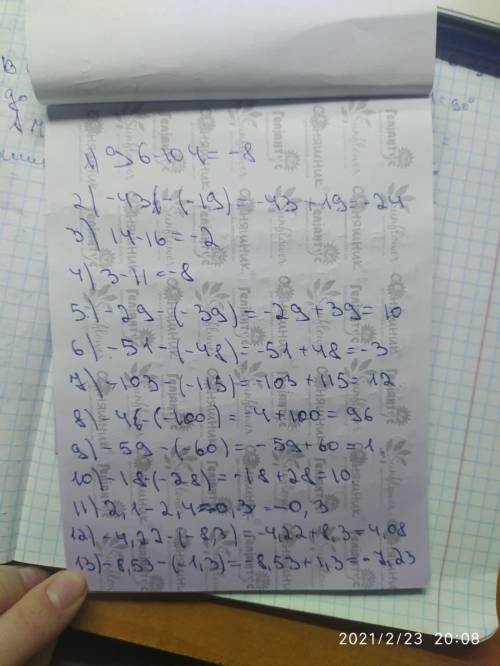 1) 96-104= -8
2) -43-(-19) = -43+19 -24
3) 14-16=-2
4) 3-11=-8
5) -29-(-39)=-29+39=10
6) -51-(-48)=-51+48=-3
7) -103-(-115)=-103+115=12
8) -4-(-100)=-4+100=96
9) -59-(-60)=-59+60=1
10) -18-(-28)=-18+28=10
11) 2,1-2,4=-0,3
12) -4,22-(-8,3) = -4,22+8,3=4,08
13) -8,53-(-1,3)= -8,53+1,3=-7,23
Соняшник
Геліантус
Sunflower
2021/2/23 20:08